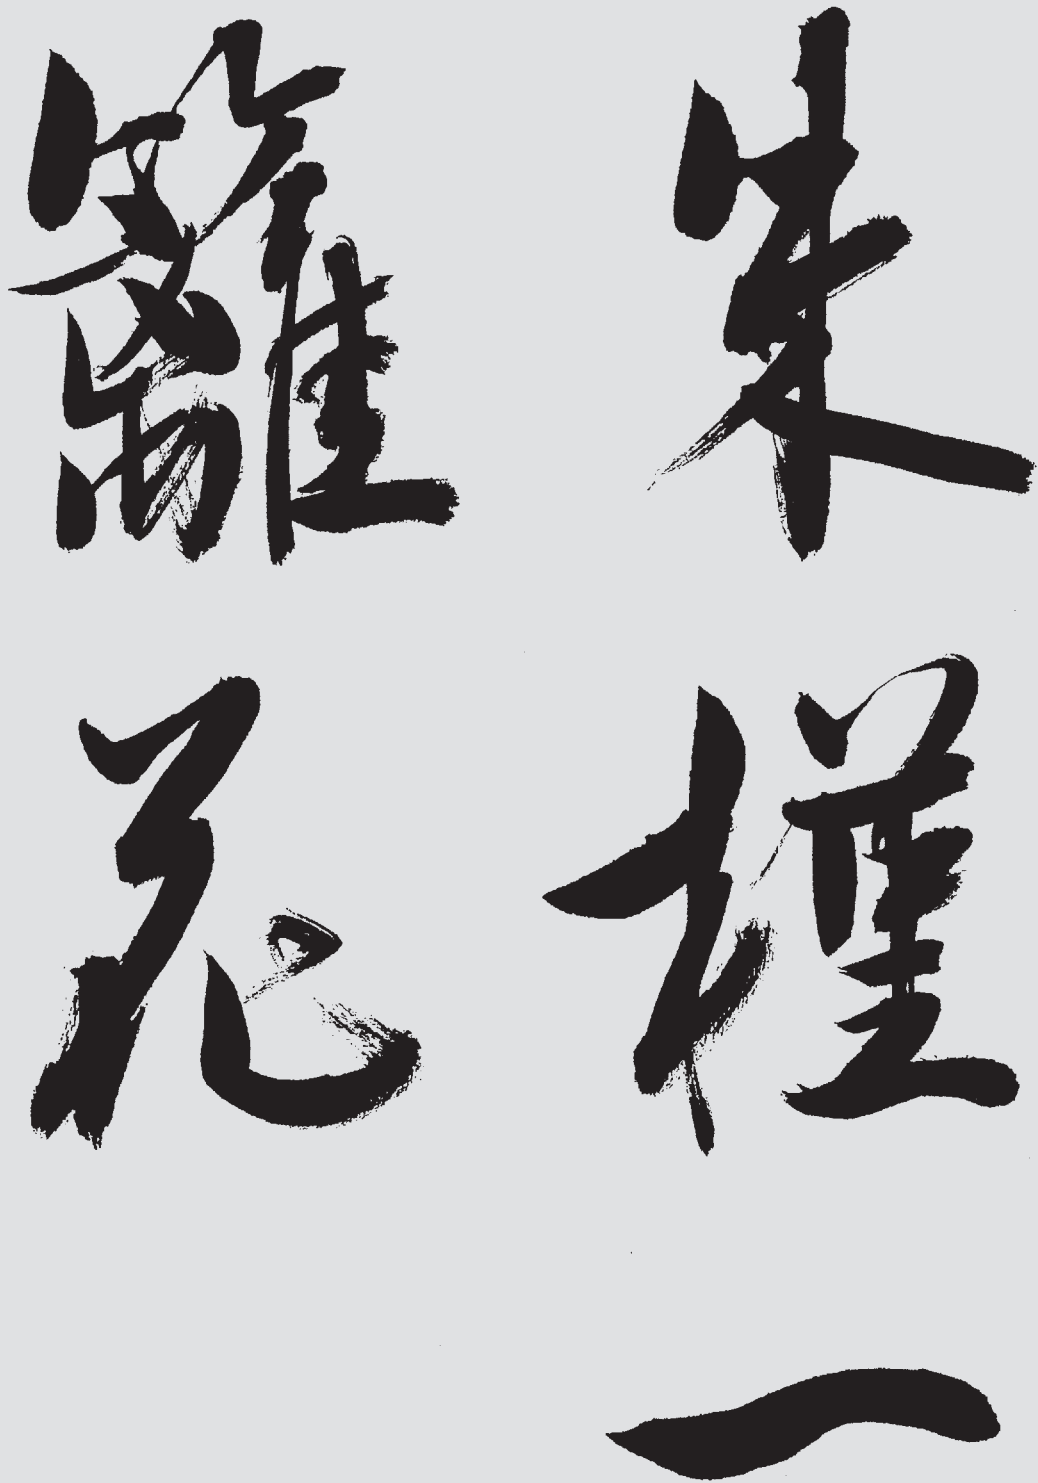 朱槿一
籬花